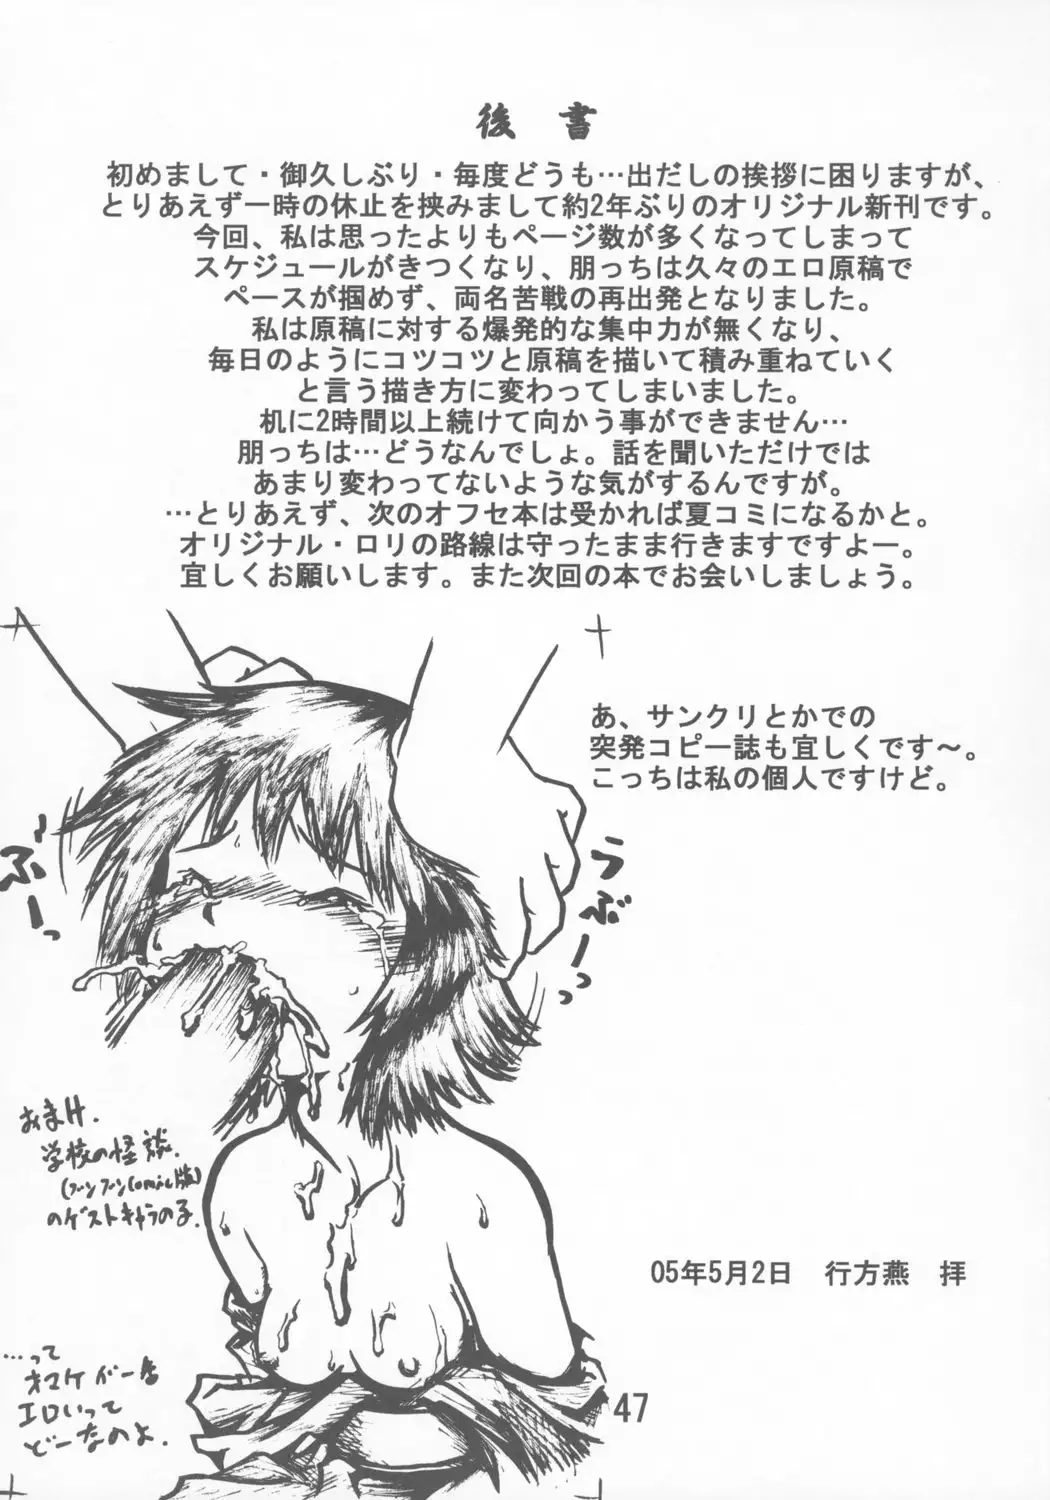 後書
初めまして・御久しぶり・毎度どうも…出だしの挨拶に困りますが、
とりあえず一時の休止を挟みまして約2年ぶりのオリジナル新刊です。
今回、私は思ったよりもページ数が多くなってしまって
スケジュールがきつくなり、朋っちは久々のエロ原稿で
ペースが掴めず、両名苦戦の再出発となりました。
私は原稿に対する爆発的な集中力が無くなり、
毎日のようにコツコツと原稿を描いて積み重ねていく
と言う描き方に変わってしまいました。
机に2時間以上続けて向かう事ができません…
朋っちは…どうなんでしょ。話を聞いただけでは
あまり変わってないような気がするんですが。
…とりあえず、次のオフセ本は受かれば夏コミになるかと。
オリジナル・ロリの路線は守ったまま行きますですよー。
宜しくお願いします。また次回の本でお会いしましょう。
あ、サンクリとかでの
突発コピー誌も宜しくです～。
こっちは私の個人ですけど。
うぶーっ
ぶーっ
おまけ.
学校の怪談.
(ブンブンComic版)
のゲストキャラの子.
…って
オマケが一番
エロいって
どーなのよ.
05年5月2日 行方燕 拝
47